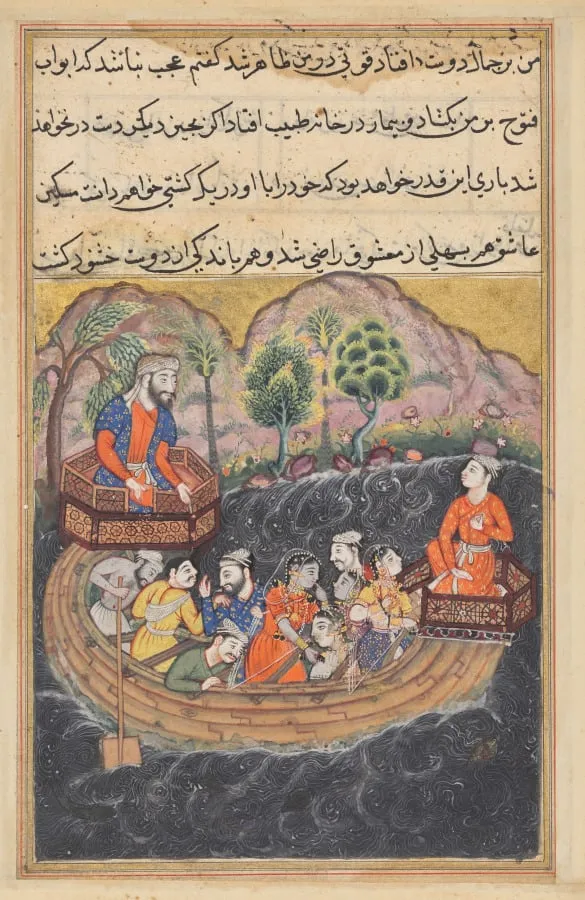 من بر جمال دوست افتاد قوتی در من ظاهر شد گفتم عجب نباشد که ابواب
فتوح بر من بگشاد و بیمار در خانه طبیب افتاد اگر همچنین دیگر دست در نخواهد
شد باری این قدر خواهد بود که خود را با او در یک کشتی خواهم دانست مسکین
عاشق هم بسهلی از معشوق راضی شد و هم باندکی از دوست خشنود گشت